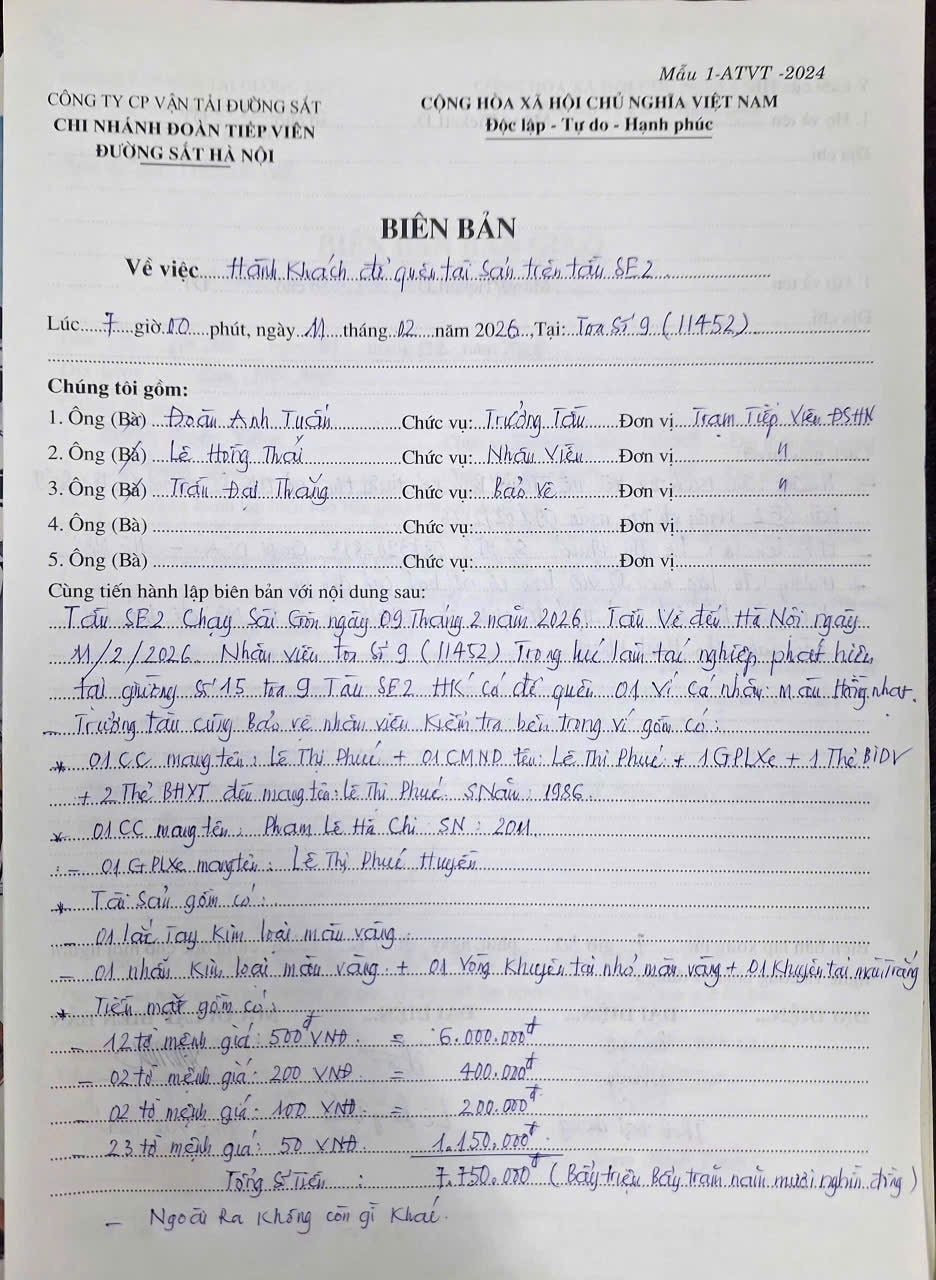 Mẫu 1-ATVT -2024
CÔNG TY CP VẬN TẢI ĐƯỜNG SẮT
CHI NHÁNH ĐOÀN TIẾP VIÊN
ĐƯỜNG SẮT HÀ NỘI
CỘNG HÒA XÃ HỘI CHỦ NGHĨA VIỆT NAM
Độc lập - Tự do - Hạnh phúc
BIÊN BẢN
Về việc Hành Khách để quên tài sản trên tàu SE2
Lúc 7 giờ 00 phút, ngày 11 tháng 02 năm 2026, Tại: Toa Số 9 (11452)
Chúng tôi gồm:
1. Ông (Bà) Đoàn Anh Tuấn Chức vụ: Trưởng Tàu Đơn vị Trạm Tiếp Viên ĐSHN
2. Ông (Bà) Lê Hồng Thái Chức vụ: Nhân Viên Đơn vị "
3. Ông (Bà) Trần Đại Thắng Chức vụ: Bảo vệ Đơn vị "
4. Ông (Bà) Chức vụ: Đơn vị
5. Ông (Bà) Chức vụ: Đơn vị
Cùng tiến hành lập biên bản với nội dung sau:
Tàu SE2 Chạy Sài Gòn ngày 09 Tháng 2 năm 2026. Tàu Về đến Hà Nội ngày
11/2/2026. Nhân viên toa Số 9 (11452) Trong lúc làm tác nghiệp phát hiện
tại giường Số 15 toa 9 Tàu SE2 HK có để quên 01 Ví cá nhân: Màu Hồng nhạt.
- Trưởng tàu cùng Bảo vệ nhân viên Kiểm tra bên trong ví gồm có:
* 01 CC mang tên: Lê Thị Phúc + 01 CMND tên: Lê Thị Phúc + 1 GPLXe + 1 Thẻ BIDV
+ 2 Thẻ BHYT đều mang tên: Lê Thị Phúc. SNăm: 1986.
* 01 CC mang tên: Phạm Lê Hà Chi SN: 2011.
- 01 GPLXe mang tên: Lê Thị Phúc Huyền
* Tài Sản gồm có:
- 01 lắc Tay Kim loại màu vàng.
- 01 nhẫn Kim loại màu vàng. + 01 Vòng Khuyên tai nhỏ màu vàng + 01 Khuyên tai màu Trắng
* Tiền mặt gồm có:
- 12 tờ mệnh giá: 500đ VNĐ. = 6.000.000đ
- 02 tờ mệnh giá: 200 VNĐ = 400.000đ
- 02 tờ mệnh giá: 100 VNĐ. = 200.000đ
- 23 tờ mệnh giá: 50 VNĐ. 1.150.000đ
Tổng Số Tiền : 7.750.000đ (Bẩy triệu Bẩy trăm năm mươi nghìn đồng)
- Ngoài Ra Không còn gì Khác.